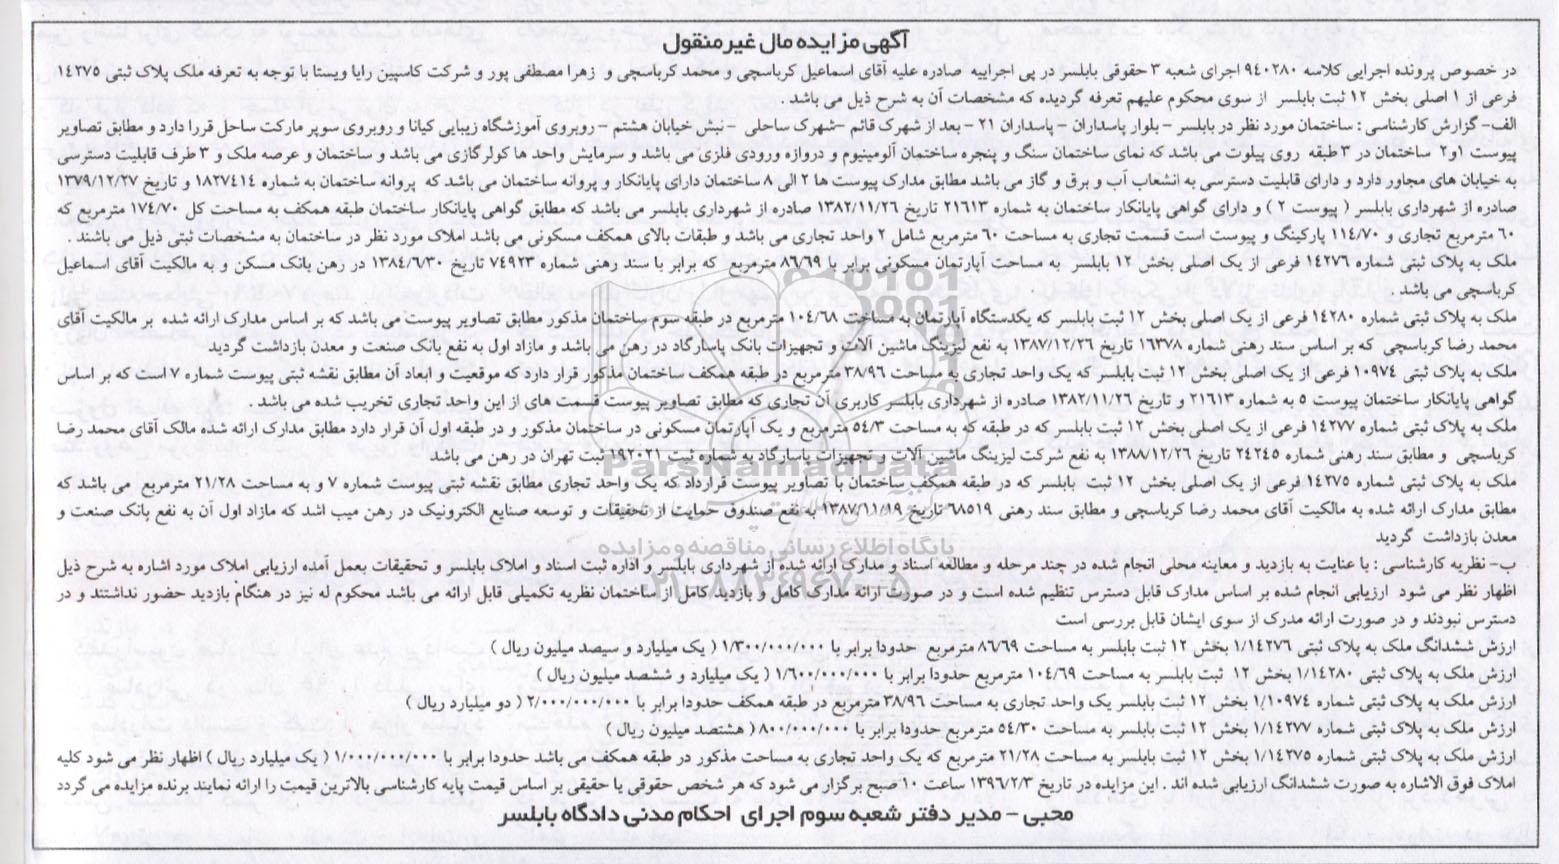 آگهی مزایده مال غیرمنقول
در خصوص پرونده اجرایی کلاسه ۹۴۰۲۸۰ اجرای شعبه ۳ حقوقی بابلسر در پی اجراییه صادره علیه آقای اسماعیل کرباسچی و محمد کرباسچی و زهرا مصطفی پور و شرکت کاسپین رایا ویستا با توجه به تعرفه ملک پلاک ثبتی ۱۴۲۷۵
فرعی از ۱ اصلی بخش ۱۲ ثبت بابلسر از سوی محکوم علیهم تعرفه گردیده که مشخصات آن به شرح ذیل می باشد
الف- گزارش کارشناسی : ساختمان مورد نظر در بابلسر - بلوار پاسداران - پاسداران ۲۱ - بعد از شهرک قائم -شهرک ساحلی - نبش خیابان هشتم - روبروی آموزشگاه زیبایی کیانا و روبروی سوپر مارکت ساحل قررا دارد و مطابق تصاویر
پیوست ۱و۲ ساختمان در ۳ طبقه روی پیلوت می باشد که نمای ساختمان سنگ و پنجره ساختمان آلومینیوم و دروازه ورودی فلزی می باشد و سرمایش واحد ها کولرگازی می باشد و ساختمان و عرصه ملک و ۳ طرف قابلیت دسترسی
به خیابان های مجاور دارد و دارای قابلیت دسترسی به انشعاب آب و برق و گاز می باشد مطابق مدارک پیوست ها ۲ الی ۸ ساختمان دارای پایانکار و پروانه ساختمان می باشد که پروانه ساختمان به شماره ۱۸۲۷۴۱۴ و تاریخ ۱۳۷۹/۱۲/۲۷
صادره از شهرداری بابلسر ( پیوست ۲ ) و دارای گواهی پایانکار ساختمان به شماره ۲۱۶۱۳ تاریخ ۱۳۸۲/۱۱/۲۶ صادره از شهرداری بابلسر می باشد که مطابق گواهی پایانکار ساختمان طبقه همکف به مساحت کل ۱۷۴/۷۰ مترمربع که
۶۰ مترمربع تجاری و ۱۱۴/۷۰ پارکینگ و پیوست است قسمت تجاری به مساحت ۶۰ مترمربع شامل ۲ واحد تجاری می باشد و طبقات بالای همکف مسکونی می باشد املاک مورد نظر در ساختمان به مشخصات ثبتی ذیل می باشند .
ملک به پلاک ثبتی شماره ۱۴۲۷۶ فرعی از یک اصلی بخش ۱۲ بابلسر به مساحت آپارتمان مسکونی برابر با ۸۶/۶۹ مترمربع که برابر با سند رهنی شماره ۷۴۹۲۳ تاریخ ۱۳۸۴/۶/۳۰ در رهن بانک مسکن و به مالکیت آقای اسماعیل
کرباسچی می باشد
ملک به پلاک ثبتی شماره ۱۴۲۸۰ فرعی از یک اصلی بخش ۱۲ ثبت بابلسر که یکدستگاه آپارتمان به مساحت ۱۰۴/۶۸ مترمربع در طبقه سوم ساختمان مذکور مطابق تصاویر پیوست می باشد که بر اساس مدارک ارائه شده بر مالکیت آقای
محمد رضا کرباسچی که بر اساس سند رهنی شماره ۱۶۳۷۸ تاریخ ۱۳۸۷/۱۲/۲۶ به نفع لیزینگ ماشین آلات و تجهیزات بانک پاسارگاد در رهن می باشد و مازاد اول به نفع بانک صنعت و معدن بازداشت گردید
ملک به پلاک ثبتی ۱۰۹۷۴ فرعی از یک اصلی بخش ۱۲ ثبت بابلسر که یک واحد تجاری به مساحت ۳۸/۹۶ مترمربع در طبقه همکف ساختمان مذکور قرار دارد که موقعیت و ابعاد آن مطابق نقشه ثبتی پیوست شماره ۷ است که بر اساس
گواهی پایانکار ساختمان پیوست ۵ به شماره ۲۱۶۱۳ و تاریخ ۱۳۸۲/۱۱/۲۶ صادره از شهرداری بابلسر کاربری آن تجاری که مطابق تصاویر پیوست قسمت های از این واحد تجاری تخریب شده می باشد .
ملک به پلاک ثبتی شماره ۱۴۲۷۷ فرعی از یک اصلی بخش ۱۲ ثبت بابلسر که در طبقه که به مساحت ۵۴/۳ مترمربع و یک آپارتمان مسکونی در ساختمان مذکور و در طبقه اول آن قرار دارد مطابق مدارک ارائه شده مالک آقای محمد رضا
کرباسچی و مطابق سند رهنی شماره ۲۴۲۴۵ تاریخ ۱۳۸۸/۱۲/۲۶ به نفع شرکت لیزینگ ماشین آلات و تجهیزات پاسارگاد به شماره ثبت ۱۹۲۰۲۱ ثبت تهران در رهن می باشد
ملک به پلاک ثبتی شماره ۱۴۲۷۵ فرعی از یک اصلی بخش ۱۲ ثبت بابلسر که در طبقه همکف ساختمان با تصاویر پیوست قرارداد که یک واحد تجاری مطابق نقشه ثبتی پیوست شماره ۷ و به مساحت ۲۱/۲۸ مترمربع می باشد که
مطابق مدارک ارائه شده به مالکیت آقای محمد رضا کرباسچی و مطابق سند رهنی ۶۸۵۱۹ تاریخ ۱۳۸۷/۱۱/۱۹ به نفع صندوق حمایت از تحقیقات و توسعه صنایع الکترونیک در رهن میب اشد که مازاد اول آن به نفع بانک صنعت و
معدن بازداشت گردید
ب- نظریه کارشناسی : با عنایت به بازدید و معاینه محلی انجام شده در چند مرحله و مطالعه اسناد و مدارک ارائه شده از شهرداری بابلسر و اداره ثبت اسناد و املاک بابلسر و تحقیقات بعمل آمده ارزیابی املاک مورد اشاره به شرح ذیل
اظهار نظر می شود ارزیابی انجام شده بر اساس مدارک قابل دسترس تنظیم شده است و در صورت ارائه مدارک کامل و بازدید کامل از ساختمان نظریه تکمیلی قابل ارائه می باشد محکوم له نیز در هنگام بازدید حضور نداشتند و در
دسترس نبودند و در صورت ارائه مدرک از سوی ایشان قابل بررسی است
ارزش ششدانگ ملک به پلاک ثبتی ۱/۱۴۲۷۶ بخش ۱۲ ثبت بابلسر به مساحت ۸۶/۶۹ مترمربع حدودا برابر با ۱/۳۰۰/۰۰۰/۰۰۰ ( یک میلیارد و سیصد میلیون ریال )
ارزش ملک به پلاک ثبتی ۱/۱۴۲۸۰ بخش ۱۲ ثبت بابلسر به مساحت ۱۰۴/۶۹ مترمربع حدودا برابر با ۱/۶۰۰/۰۰۰/۰۰۰ ( یک میلیارد و ششصد میلیون ریال )
ارزش ملک به پلاک ثبتی شماره ۱/۱۰۹۷۴ بخش ۱۲ ثبت بابلسر یک واحد تجاری به مساحت ۳۸/۹۶ مترمربع در طبقه همکف حدودا برابر با ۲/۰۰۰/۰۰۰/۰۰۰ ( دو میلیارد ریال )
ارزش ملک به پلاک ثبتی شماره ۱/۱۴۲۷۷ بخش ۱۲ ثبت بابلسر به مساحت ۵۴/۳۰ مترمربع حدودا برابر با ۸۰۰/۰۰۰/۰۰۰ ( هشتصد میلیون ریال )
ارزش ملک به پلاک ثبتی شماره ۱/۱۴۲۷۵ بخش ۱۲ ثبت بابلسر به مساحت ۲۱/۲۸ مترمربع که یک واحد تجاری به مساحت مذکور در طبقه همکف می باشد حدودا برابر با ۱/۰۰۰/۰۰۰/۰۰۰ ( یک میلیارد ریال ) اظهار نظر می شود کلیه
املاک فوق الاشاره به صورت ششدانگ ارزیابی شده اند . این مزایده در تاریخ ۱۳۹۶/۲/۳ ساعت ۱۰ صبح برگزار می شود که هر شخص حقوقی یا حقیقی بر اساس قیمت پایه کارشناسی بالاترین قیمت را ارائه نمایند برنده مزایده می گردد
محبی - مدیر دفتر شعبه سوم اجرای احکام مدنی دادگاه بابلسر
ParsNamadData
پایگاه اطلاع رسانی مناقصه و مزایده
۰۲۱-۸۸۳۴۹۶۷۰-۵